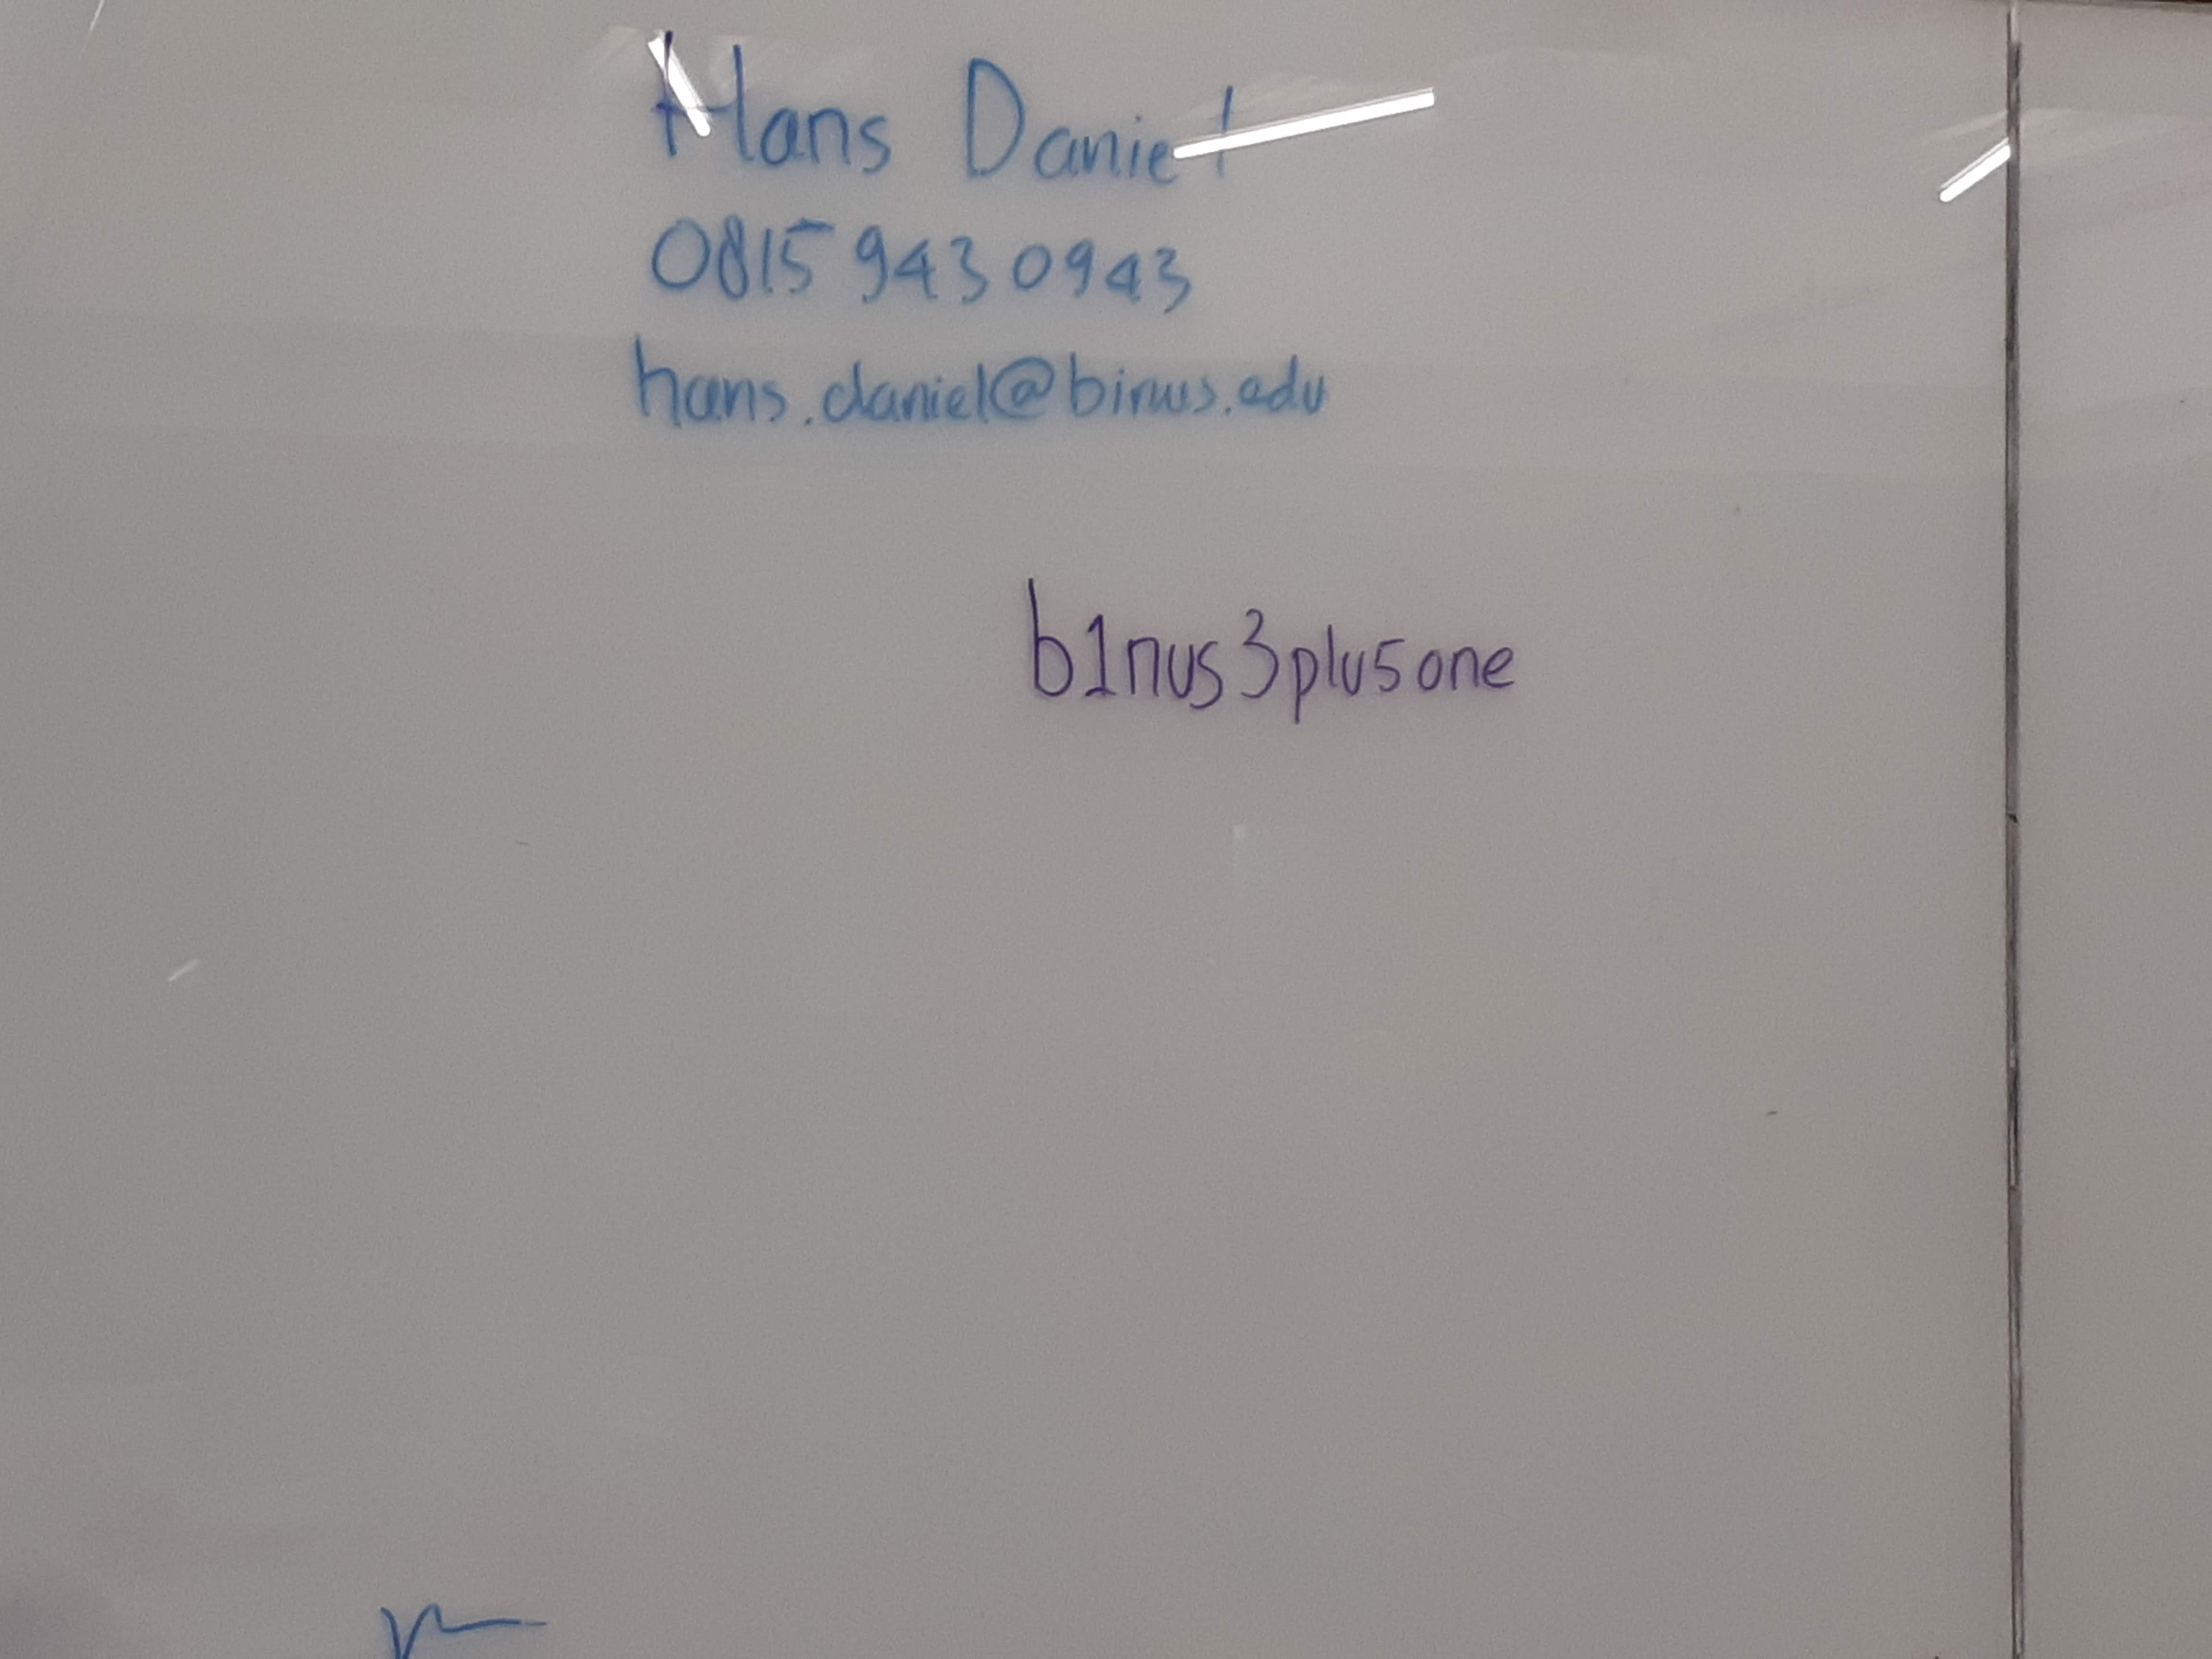 Hans Daniel
0815 943 0943
hans.daniel@binus.edu
b1nus3plu5one